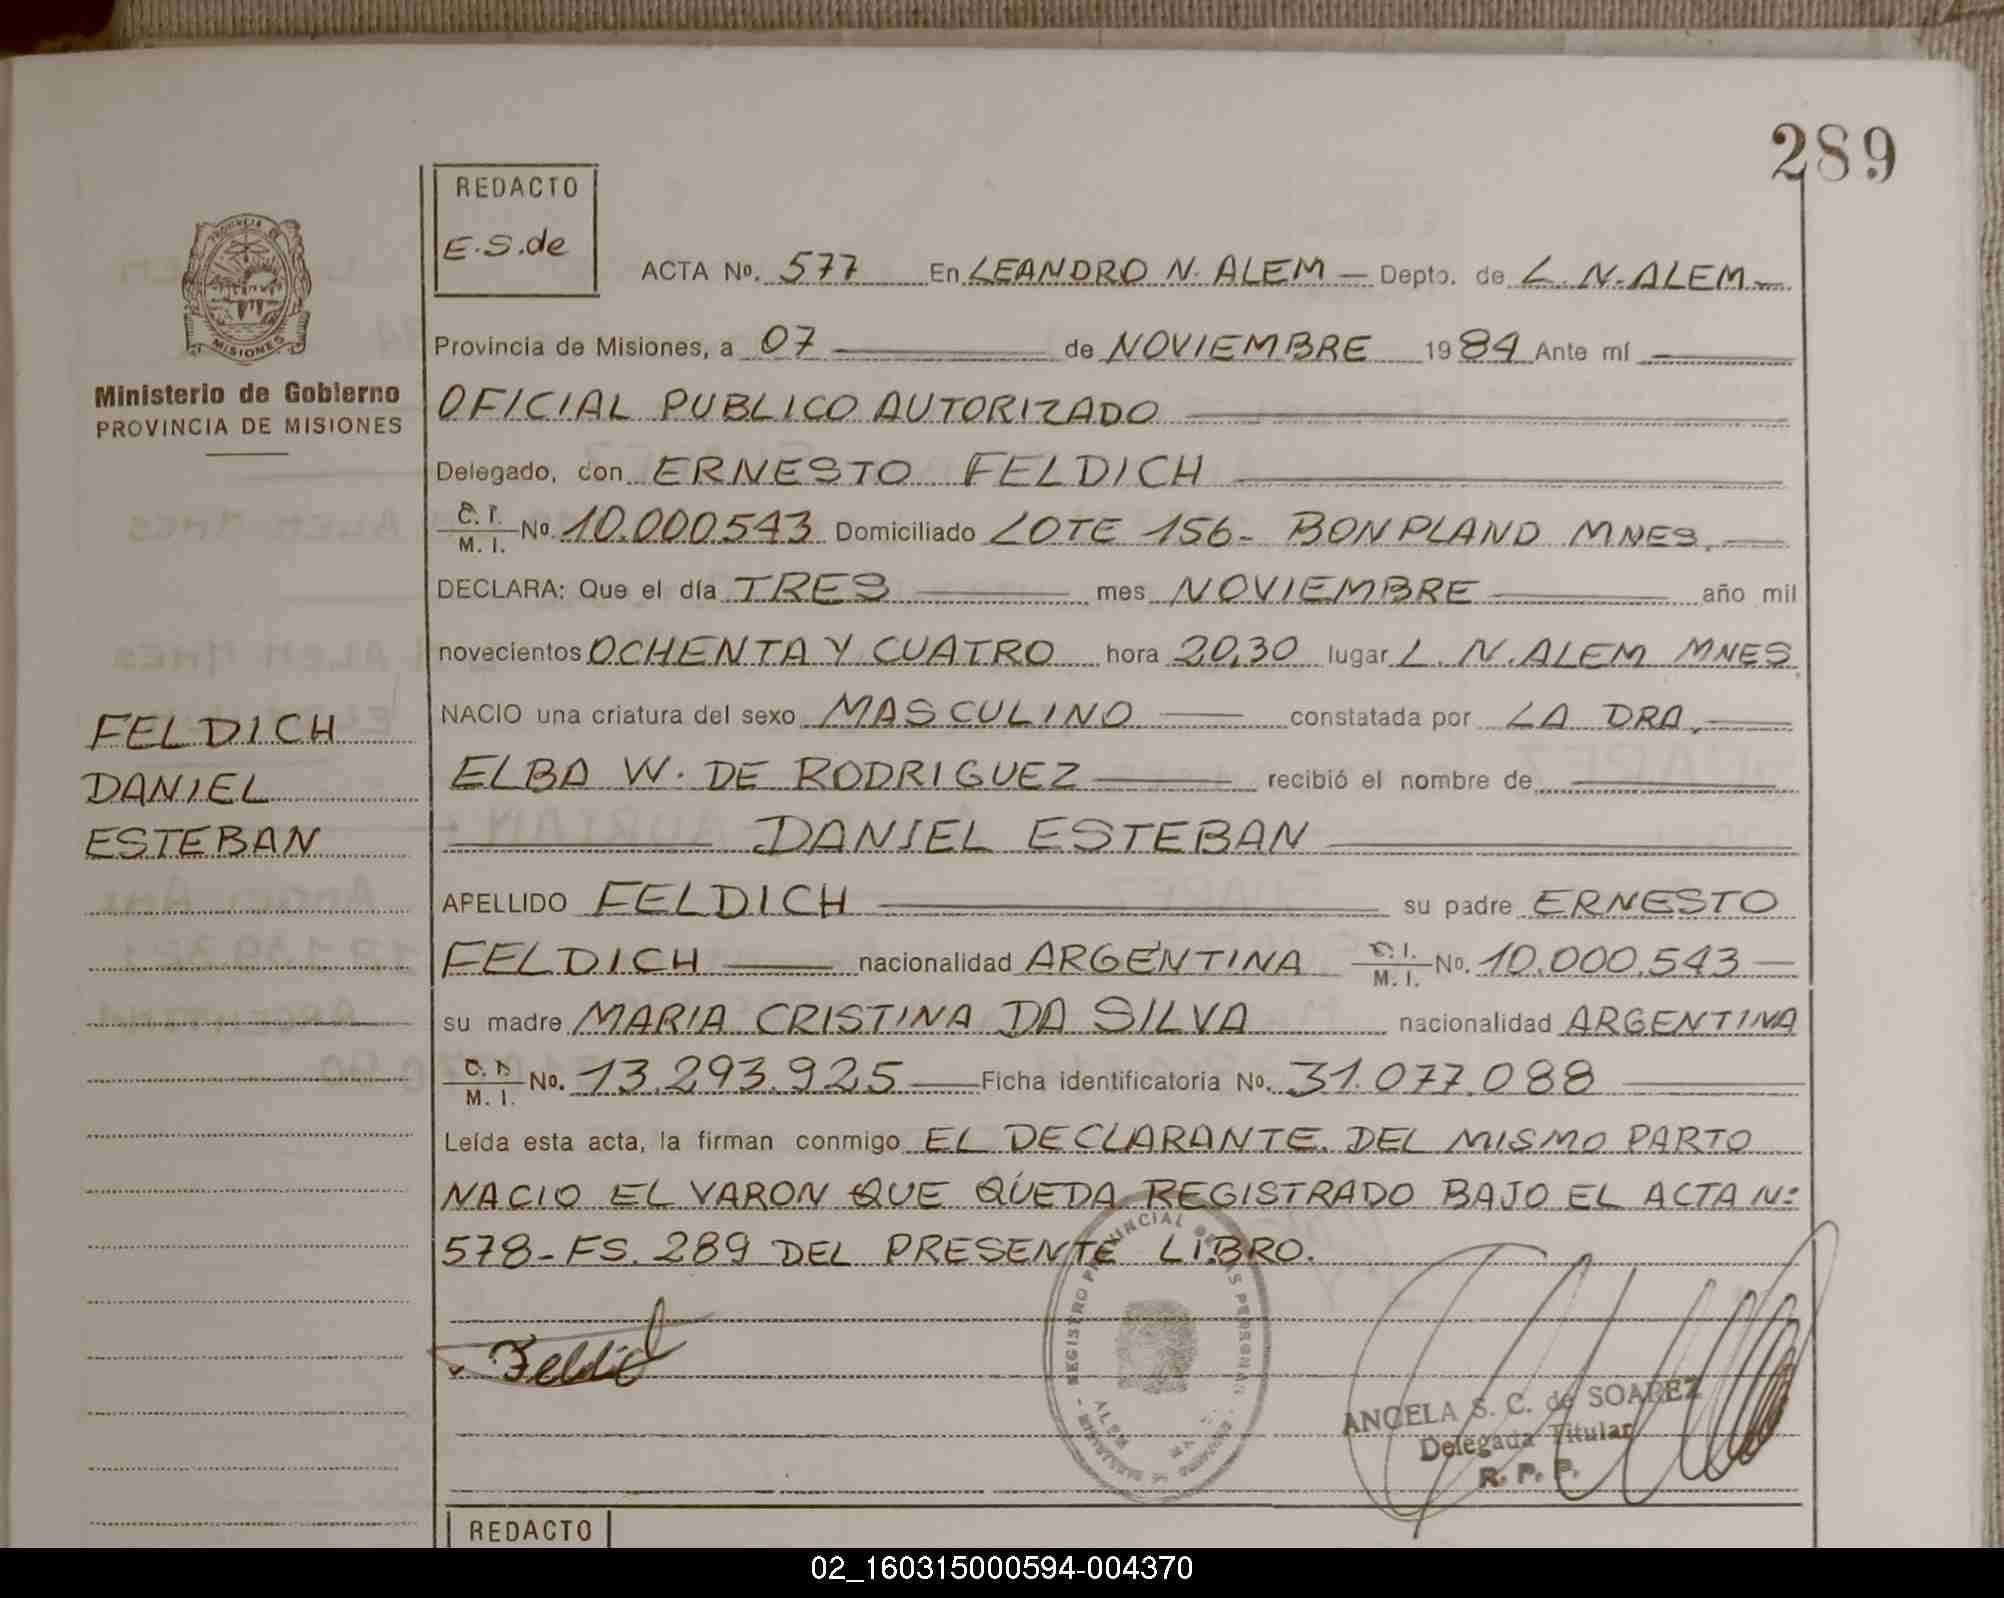 289
REDACTO
E.S.de
PROVINCIA DE
MISIONES
Ministerio de Gobierno
PROVINCIA DE MISIONES
ACTA No. 577 En LEANDRO N. ALEM — Depto. de L. N. ALEM
Provincia de Misiones, a 07 de NOVIEMBRE 1984 Ante mí
OFICIAL PUBLICO AUTORIZADO
Delegado, con ERNESTO FELDICH
C. I. M. I. No. 10.000.543 Domiciliado LOTE 156- BONPLAND MNES.
DECLARA: Que el día TRES mes NOVIEMBRE año mil
novecientos OCHENTA Y CUATRO hora 20,30 lugar L. N. ALEM MNES
NACIO una criatura del sexo MASCULINO constatada por LA DRA.
ELBA W. DE RODRIGUEZ recibió el nombre de
DANIEL ESTEBAN
APELLIDO FELDICH su padre ERNESTO
FELDICH nacionalidad ARGENTINA C. I. M. I. No. 10.000.543
su madre MARIA CRISTINA DA SILVA nacionalidad ARGENTINA
C. I. M. I. No. 13.293.925 Ficha identificatoria No. 31.077.088
Leída esta acta, la firman conmigo EL DECLARANTE. DEL MISMO PARTO
NACIO EL VARON QUE QUEDA REGISTRADO BAJO EL ACTA N:
578-FS. 289 DEL PRESENTE LIBRO.
FELDICH
DANIEL
ESTEBAN
REGISTRO PROVINCIAL DE LAS PERSONAS
ALEM
ANGELA S. C. de SOAREZ
Delegada Titular
R. P. P.
REDACTO
02_160315000594-004370